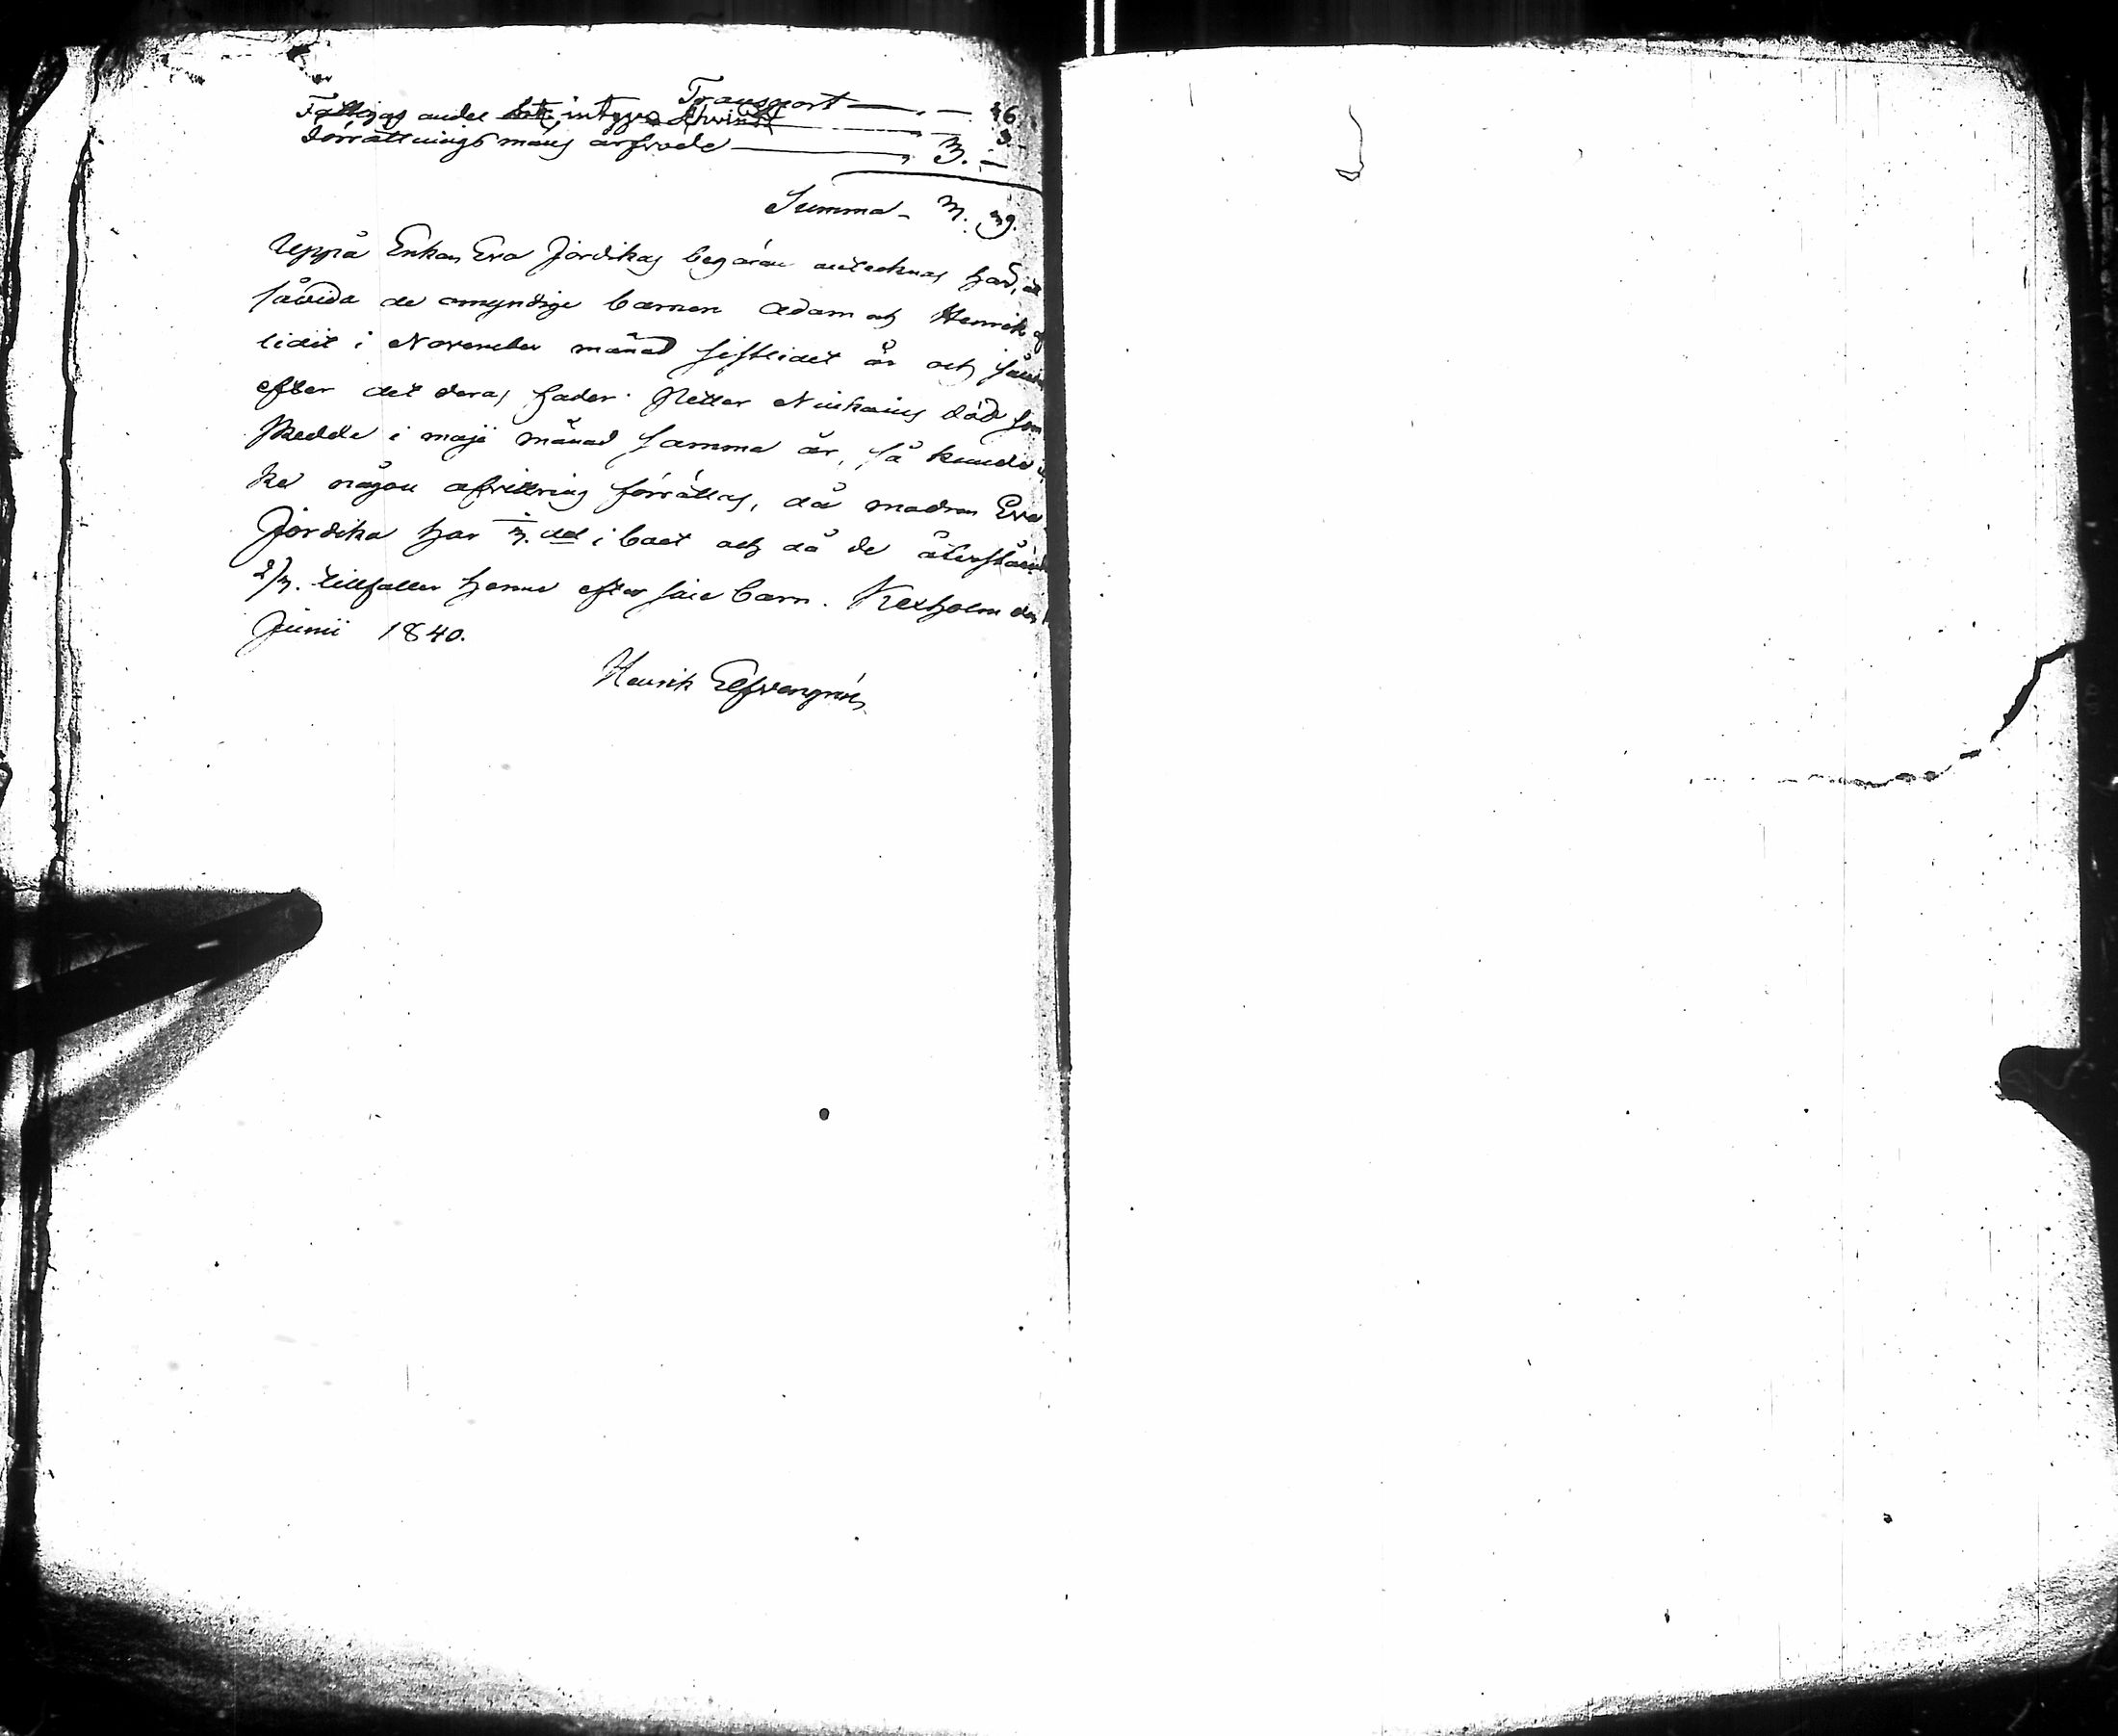 Transport — „ — 46.
Fattigas andel — „ — 3.-
Förrättningsmans arfvode — „ 3. —
Summa - 3. 39.
Uppå Enkan Eva Jordikas begäran antecknas här, at
såvida de omyndige barnen Adam och Henrik af
lidit i November månad sistlidet år och såled
efter det deras fader Petter Ninkains död som
skedde i maji månad samma år, så kunde ic
ke någon afvittring förrättas, då modren Eva
Jordika har 1/3. del i boet och då de återståend
2/3. tillfaller henne efter sine barn. Kexholm den
Junii 1840.
Henrik Elfvengrén